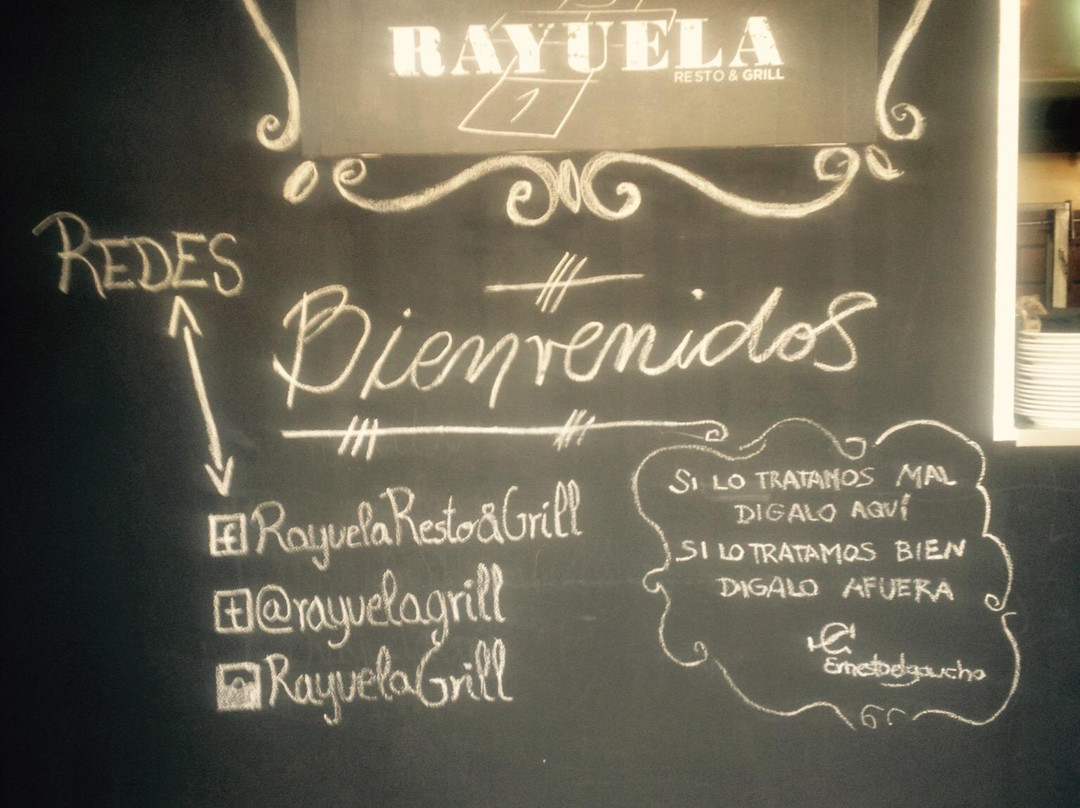 RAYUELA
RESTO & GRILL
1
REDES
Bienvenidos
RayuelaResto&Grill
@rayuelagrill
RayuelaGrill
SI LO TRATAMOS MAL
DIGALO AQUÍ
SI LO TRATAMOS BIEN
DIGALO AFUERA
Ernestoelgaucho